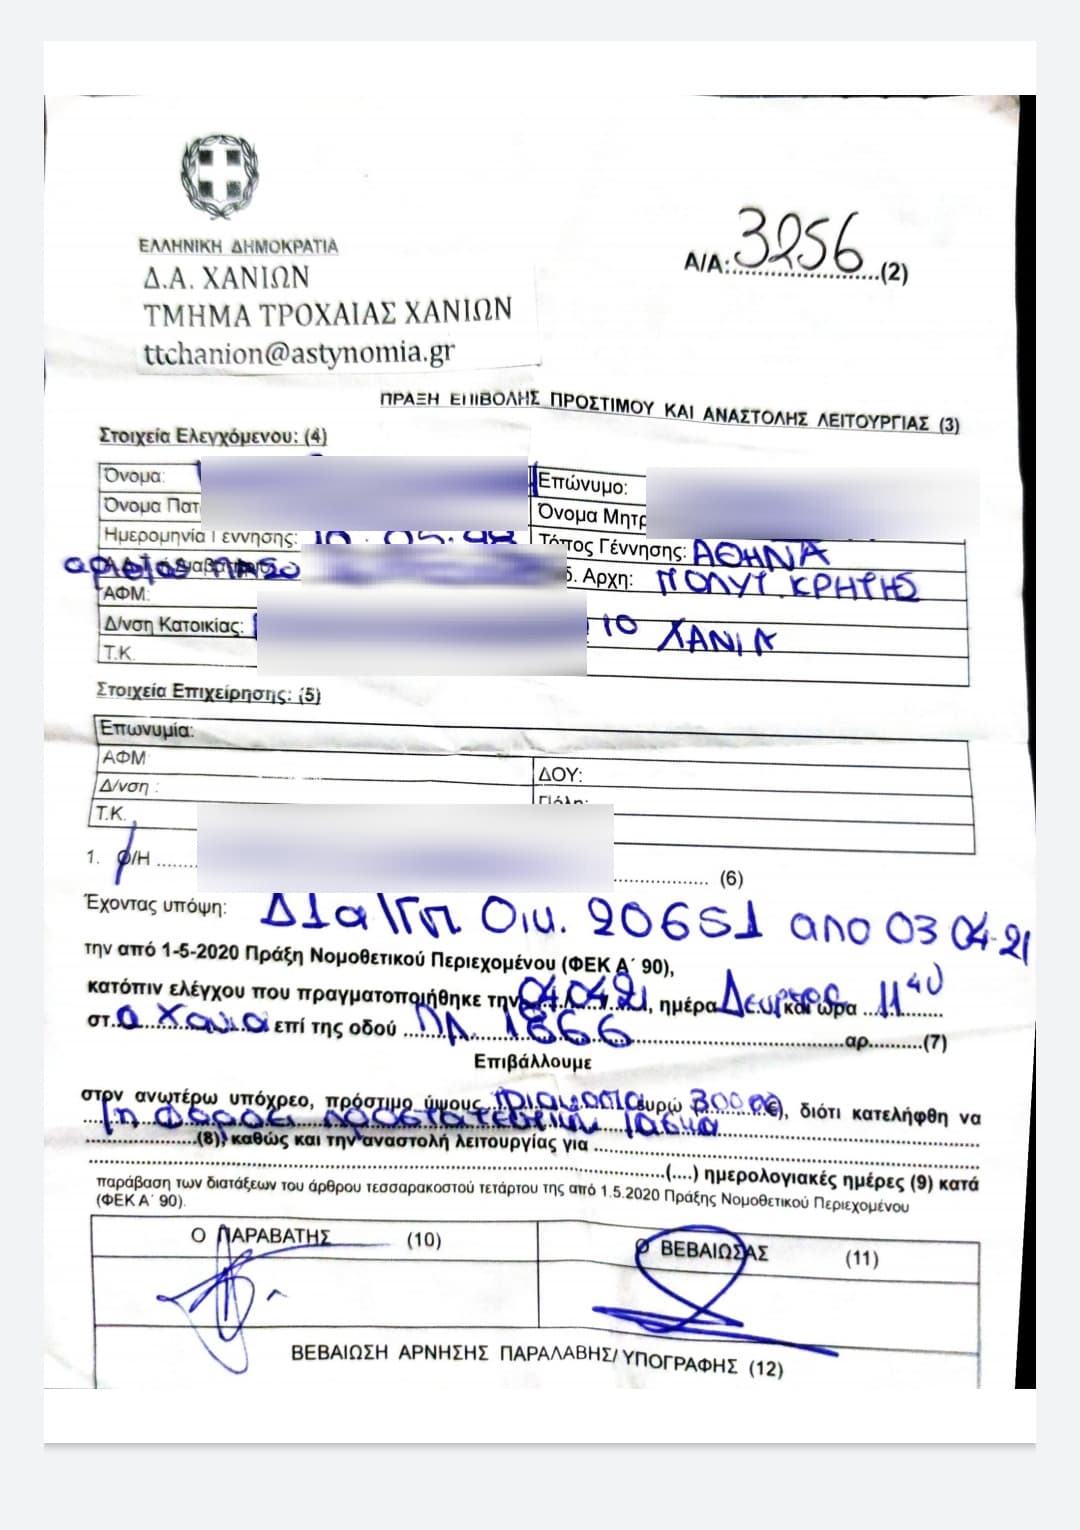 ΕΛΛΗΝΙΚΗ ΔΗΜΟΚΡΑΤΙΑ
Δ.Α. ΧΑΝΙΩΝ
ΤΜΗΜΑ ΤΡΟΧΑΙΑΣ ΧΑΝΙΩΝ
ttchanion@astynomia.gr
Α/Α:3256(2)
ΠΡΑΞΗ ΕΠΙΒΟΛΗΣ ΠΡΟΣΤΙΜΟΥ ΚΑΙ ΑΝΑΣΤΟΛΗΣ ΛΕΙΤΟΥΡΓΙΑΣ (3)
Στοιχεία Ελεγχόμενου: (4)
Όνομα: Επώνυμο:
Όνομα Πατ Όνομα Μητρ
Ημερομηνία Γέννησης: Τόπος Γέννησης: ΑΘΗΝΑ
. Αρχη: ΠΟΛΥΤ. ΚΡΗΤΗΣ
ΑΦΜ:
Δ/νση Κατοικίας: 10 ΧΑΝΙΑ
Τ.Κ.
Στοιχεία Επιχείρησης: (5)
Επωνυμία:
ΑΦΜ ΔΟΥ:
Δ/νση : Πόλη:
Τ.Κ.
1. Ο/Η ........ .................. (6)
Έχοντας υπόψη: Δ1α/Γπ Οικ. 20651 απο 03 04-21
την από 1-5-2020 Πράξη Νομοθετικού Περιεχομένου (ΦΕΚ Α΄ 90),
κατόπιν ελέγχου που πραγματοποιήθηκε την 04.04.21, ημέρα και ώρα ...11 40
στ.α Χανια επί της οδού ...ΠΛ. 1866 αρ..........(7)
Επιβάλλουμε
στον ανωτέρω υπόχρεο, πρόστιμο ύψους τριακοσια ευρώ (300 €), διότι κατελήφθη να
μη φέρει προστατευτικη μασκα
(8), καθώς και την αναστολή λειτουργίας για
(....) ημερολογιακές ημέρες (9) κατά
παράβαση των διατάξεων του άρθρου τεσσαρακοστού τετάρτου της από 1.5.2020 Πράξης Νομοθετικού Περιεχομένου
(ΦΕΚ Α΄ 90).
Ο ΠΑΡΑΒΑΤΗΣ (10) Ο ΒΕΒΑΙΩΣΑΣ (11)
ΒΕΒΑΙΩΣΗ ΑΡΝΗΣΗΣ ΠΑΡΑΛΑΒΗΣ/ΥΠΟΓΡΑΦΗΣ (12)